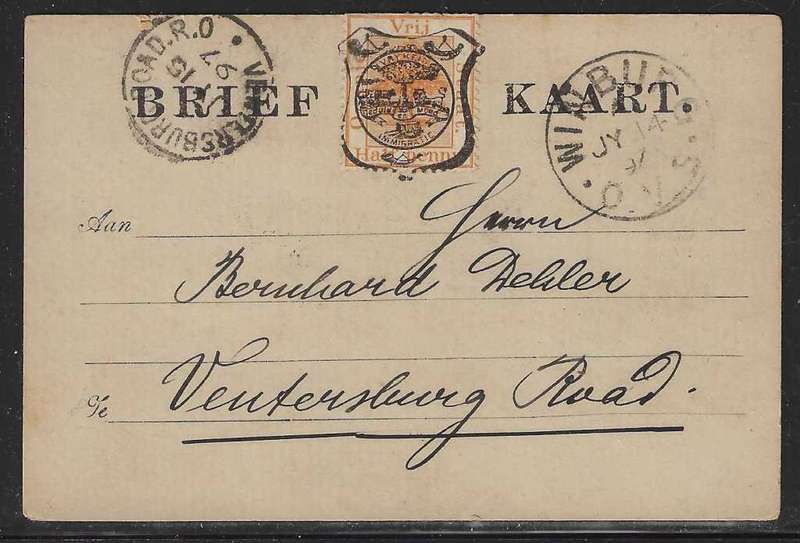 VENTERSBURG ROAD.R.O
97
Vrij
BRIEF KAART.
Half penny
IMMIGRATIE
WINBURG
JY 14
97
O.V.S.
Aan Herrn
Bernhard Dehler
Te Ventersburg Road.